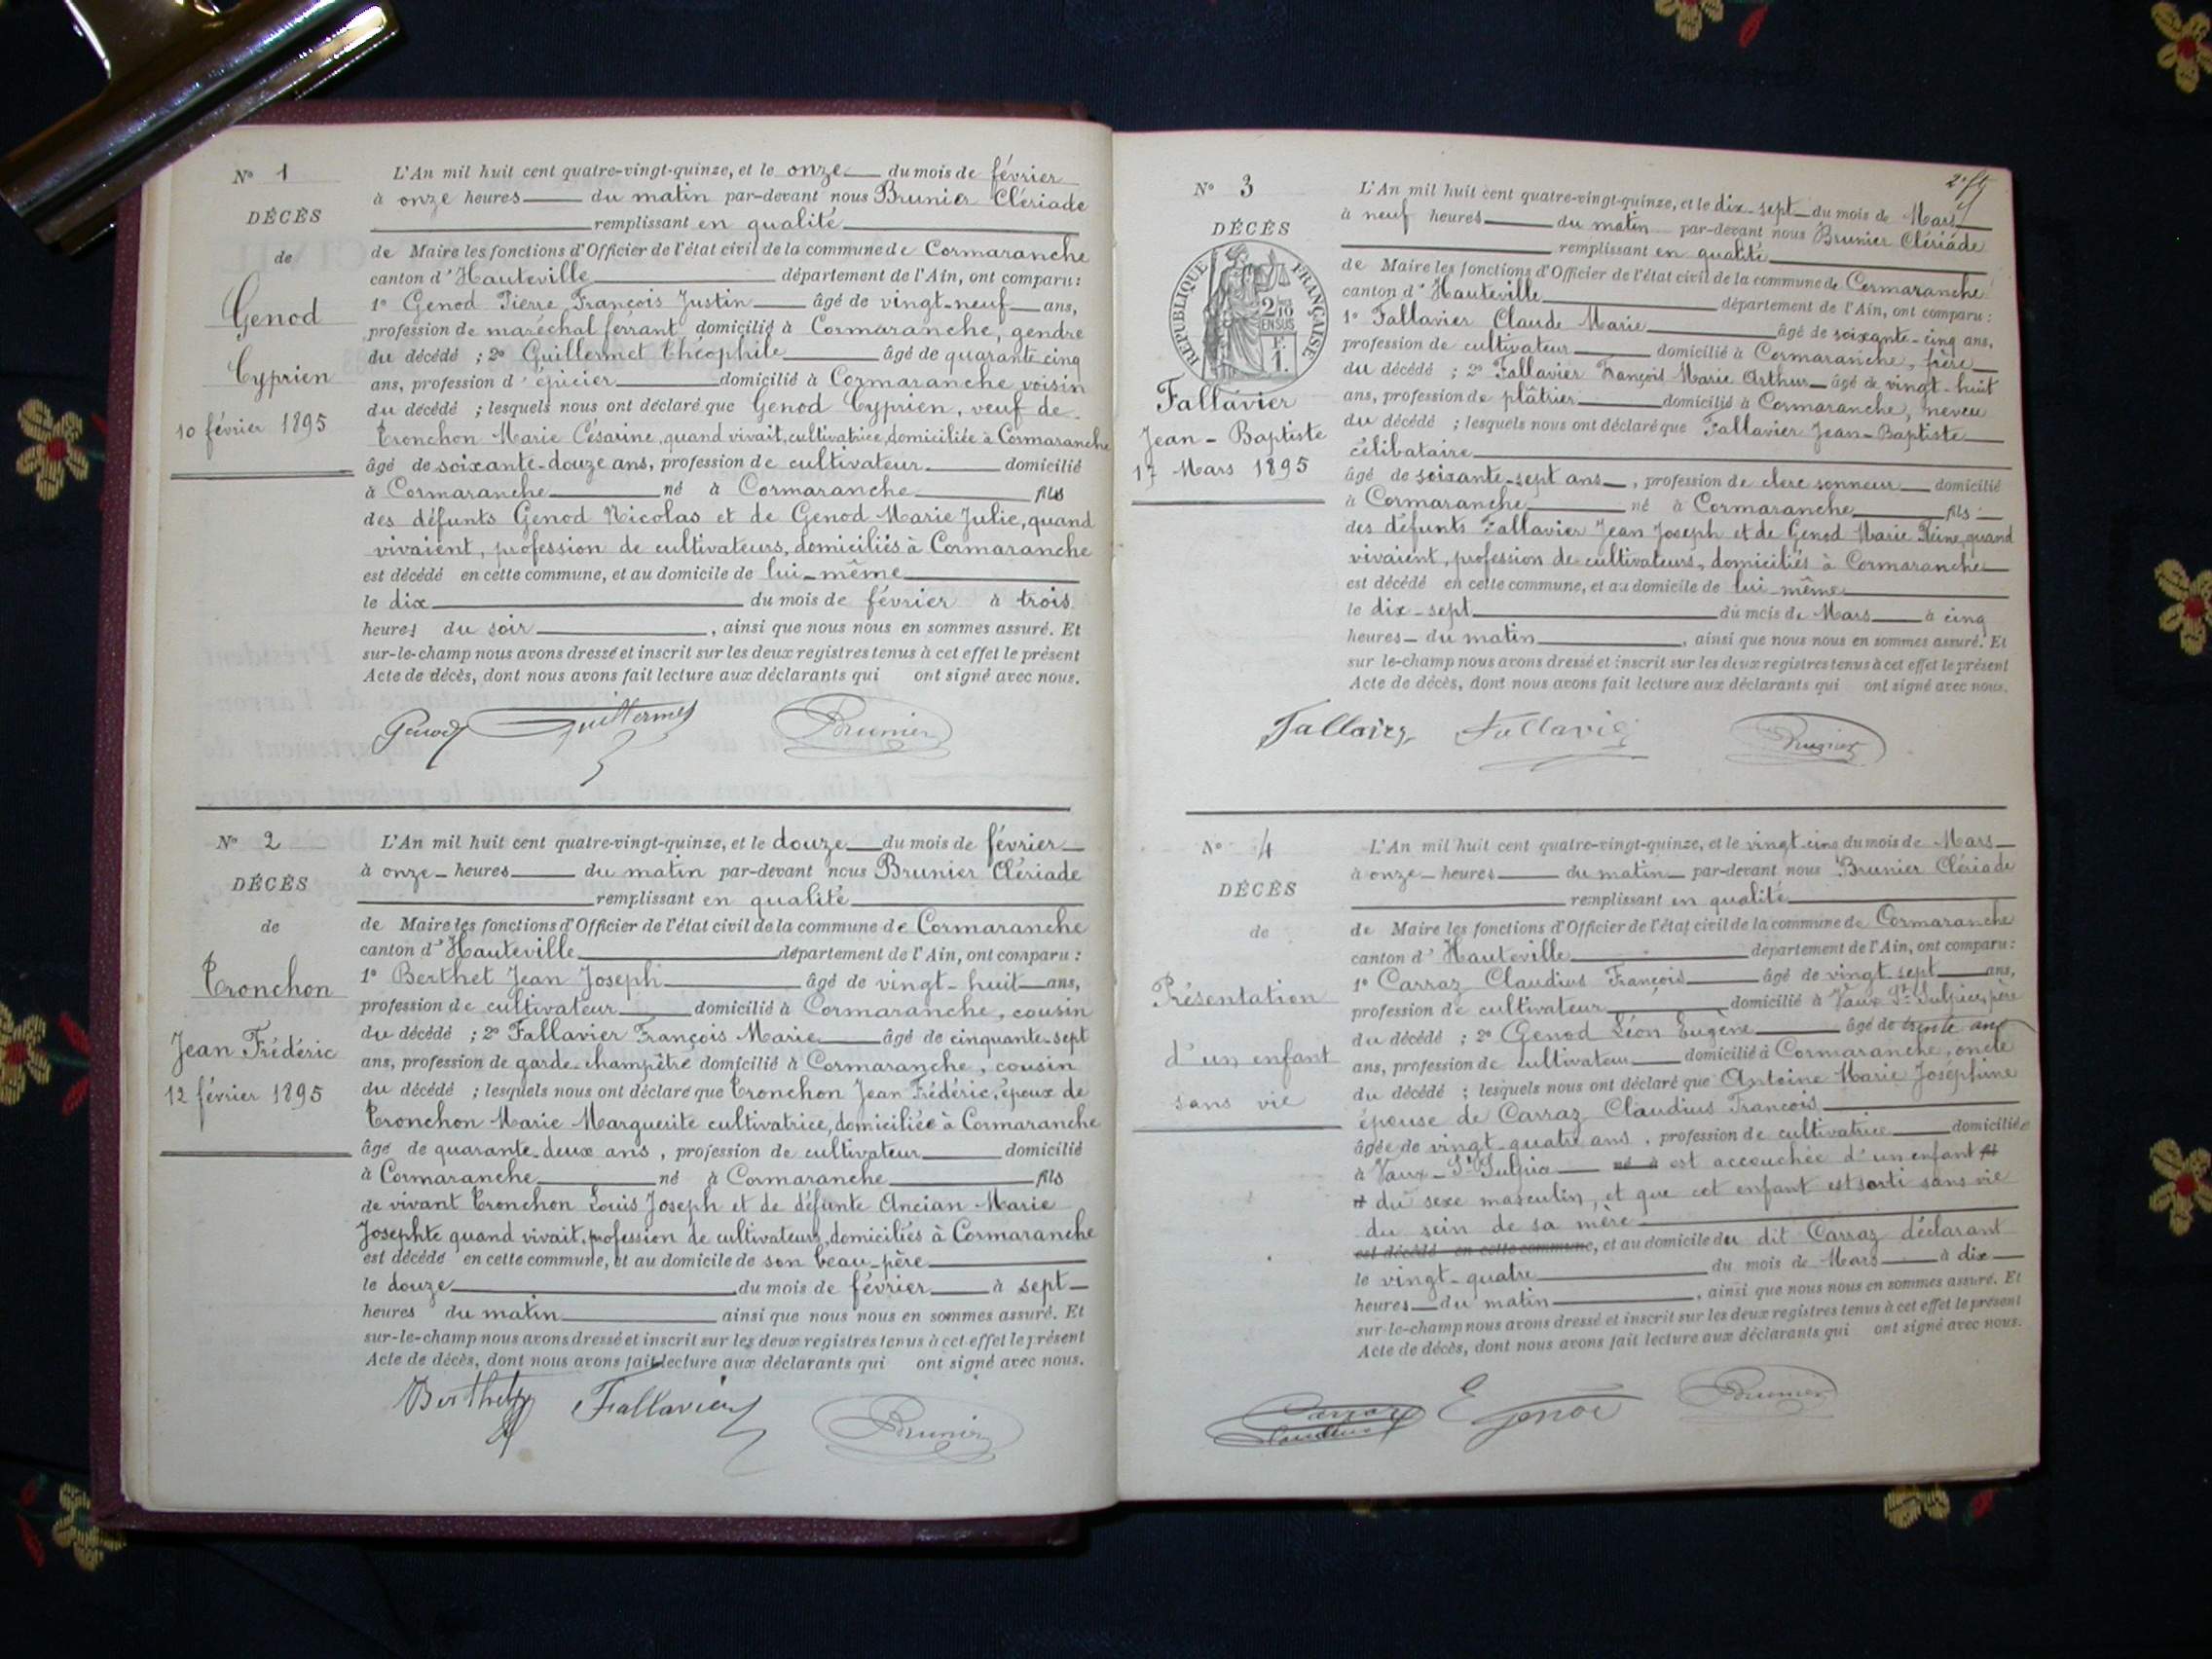 N° 1
DÉCÈS
de
Genod
Cyprien
10 février 1895
L'An mil huit cent quatre-vingt-quinze, et le onze du mois de février
à onze heures du matin par-devant nous Brunier Clériade
remplissant en qualité
de Maire les fonctions d'Officier de l'état civil de la commune de Cormaranche
canton d'Hauteville département de l'Ain, ont comparu :
1° Genod Pierre François Justin âgé de vingt-neuf ans,
profession de maréchal ferrant domicilié à Cormaranche, gendre
du décédé ; 2° Guillermet Théophile âgé de quarante cinq
ans, profession d'épicier domicilié à Cormaranche voisin
du décédé ; lesquels nous ont déclaré que Genod Cyprien, veuf de
Tronchon Marie Césarine, quand vivait, cultivatrice, domiciliée à Cormaranche
âgé de soixante-douze ans, profession de cultivateur domicilié
à Cormaranche né à Cormaranche fils
des défunts Genod Nicolas et de Genod Marie Julie, quand
vivaient, profession de cultivateurs, domiciliés à Cormaranche
est décédé en cette commune, et au domicile de lui-même
le dix du mois de février à trois
heures du soir, ainsi que nous nous en sommes assuré. Et
sur-le-champ nous avons dressé et inscrit sur les deux registres tenus à cet effet le présent
Acte de décès, dont nous avons fait lecture aux déclarants qui ont signé avec nous.
Genod Guillermet Brunier
N° 2
DÉCÈS
de
Tronchon
Jean Frédéric
12 février 1895
L'An mil huit cent quatre-vingt-quinze, et le douze du mois de février
à onze heures du matin par-devant nous Brunier Clériade
remplissant en qualité
de Maire les fonctions d'Officier de l'état civil de la commune de Cormaranche
canton d'Hauteville département de l'Ain, ont comparu :
1° Berthet Jean Joseph âgé de vingt-huit ans,
profession de cultivateur domicilié à Cormaranche, cousin
du décédé ; 2° Fallavier François Marie âgé de cinquante-sept
ans, profession de garde champêtre domicilié à Cormaranche, cousin
du décédé ; lesquels nous ont déclaré que Tronchon Jean Frédéric, époux de
Tronchon Marie Marguerite cultivatrice, domiciliée à Cormaranche
âgé de quarante-deux ans, profession de cultivateur domicilié
à Cormaranche né à Cormaranche fils
de vivant Tronchon Louis Joseph et de défunte Ancian Marie
Josephte quand vivait, profession de cultivateurs, domiciliés à Cormaranche
est décédé en cette commune, et au domicile de son beau-père
le douze du mois de février à sept
heures du matin ainsi que nous nous en sommes assuré. Et
sur-le-champ nous avons dressé et inscrit sur les deux registres tenus à cet effet le présent
Acte de décès, dont nous avons fait lecture aux déclarants qui ont signé avec nous.
Berthet Fallavier Brunier
N° 3
DÉCÈS
RÉPUBLIQUE FRANÇAISE
2/10 EN SUS
F.
1.
Fallavier
Jean-Baptiste
17 Mars 1895
L'An mil huit cent quatre-vingt-quinze, et le dix-sept du mois de Mars
à neuf heures du matin par-devant nous Brunier Clériade
remplissant en qualité
de Maire les fonctions d'Officier de l'état civil de la commune de Cormaranche
canton d'Hauteville département de l'Ain, ont comparu :
1° Fallavier Claude Marie âgé de soixante-cinq ans,
profession de cultivateur domicilié à Cormaranche, frère
du décédé ; 2° Fallavier François Marie Arthur âgé de vingt-huit
ans, profession de plâtrier domicilié à Cormaranche, neveu
du décédé ; lesquels nous ont déclaré que Fallavier Jean-Baptiste
célibataire
âgé de soixante-sept ans, profession de clerc sonneur domicilié
à Cormaranche né à Cormaranche fils
des défunts Fallavier Jean Joseph et de Genod Marie Reine, quand
vivaient, profession de cultivateurs, domiciliés à Cormaranche
est décédé en cette commune, et au domicile de lui-même
le dix-sept du mois de Mars à cinq
heures du matin, ainsi que nous nous en sommes assuré. Et
sur le-champ nous avons dressé et inscrit sur les deux registres tenus à cet effet le présent
Acte de décès, dont nous avons fait lecture aux déclarants qui ont signé avec nous.
Fallavier Brunier
N° 4
DÉCÈS
de
Présentation
d'un enfant
sans vie
L'An mil huit cent quatre-vingt-quinze, et le vingt-cinq du mois de Mars
à onze heures du matin par-devant nous Brunier Clériade
remplissant en qualité
de Maire les fonctions d'Officier de l'état civil de la commune de Cormaranche
canton d'Hauteville département de l'Ain, ont comparu :
1° Carraz Claudius François âgé de vingt sept ans,
profession de cultivateur domicilié à Vaux St Sulpice, père
du décédé ; 2° Genod Léon Eugène âgé de trente ans
ans, profession de cultivateur domicilié à Cormaranche, oncle
du décédé ; lesquels nous ont déclaré que Antoine Marie Joséphine
épouse de Carraz Claudius François
âgée de vingt quatre ans, profession de cultivatrice domiciliée
à Vaux-St Sulpice né à est accouchée d'un enfant fil
et du sexe masculin, et que cet enfant est sorti sans vie
du sein de sa mère
est décédé en cette commune, et au domicile du dit Carraz déclarant
le vingt-quatre du mois de Mars à dix
heures du matin, ainsi que nous nous en sommes assuré. Et
sur-le-champ nous avons dressé et inscrit sur les deux registres tenus à cet effet le présent
Acte de décès, dont nous avons fait lecture aux déclarants qui ont signé avec nous.
Carraz Claudius E Genod Brunier